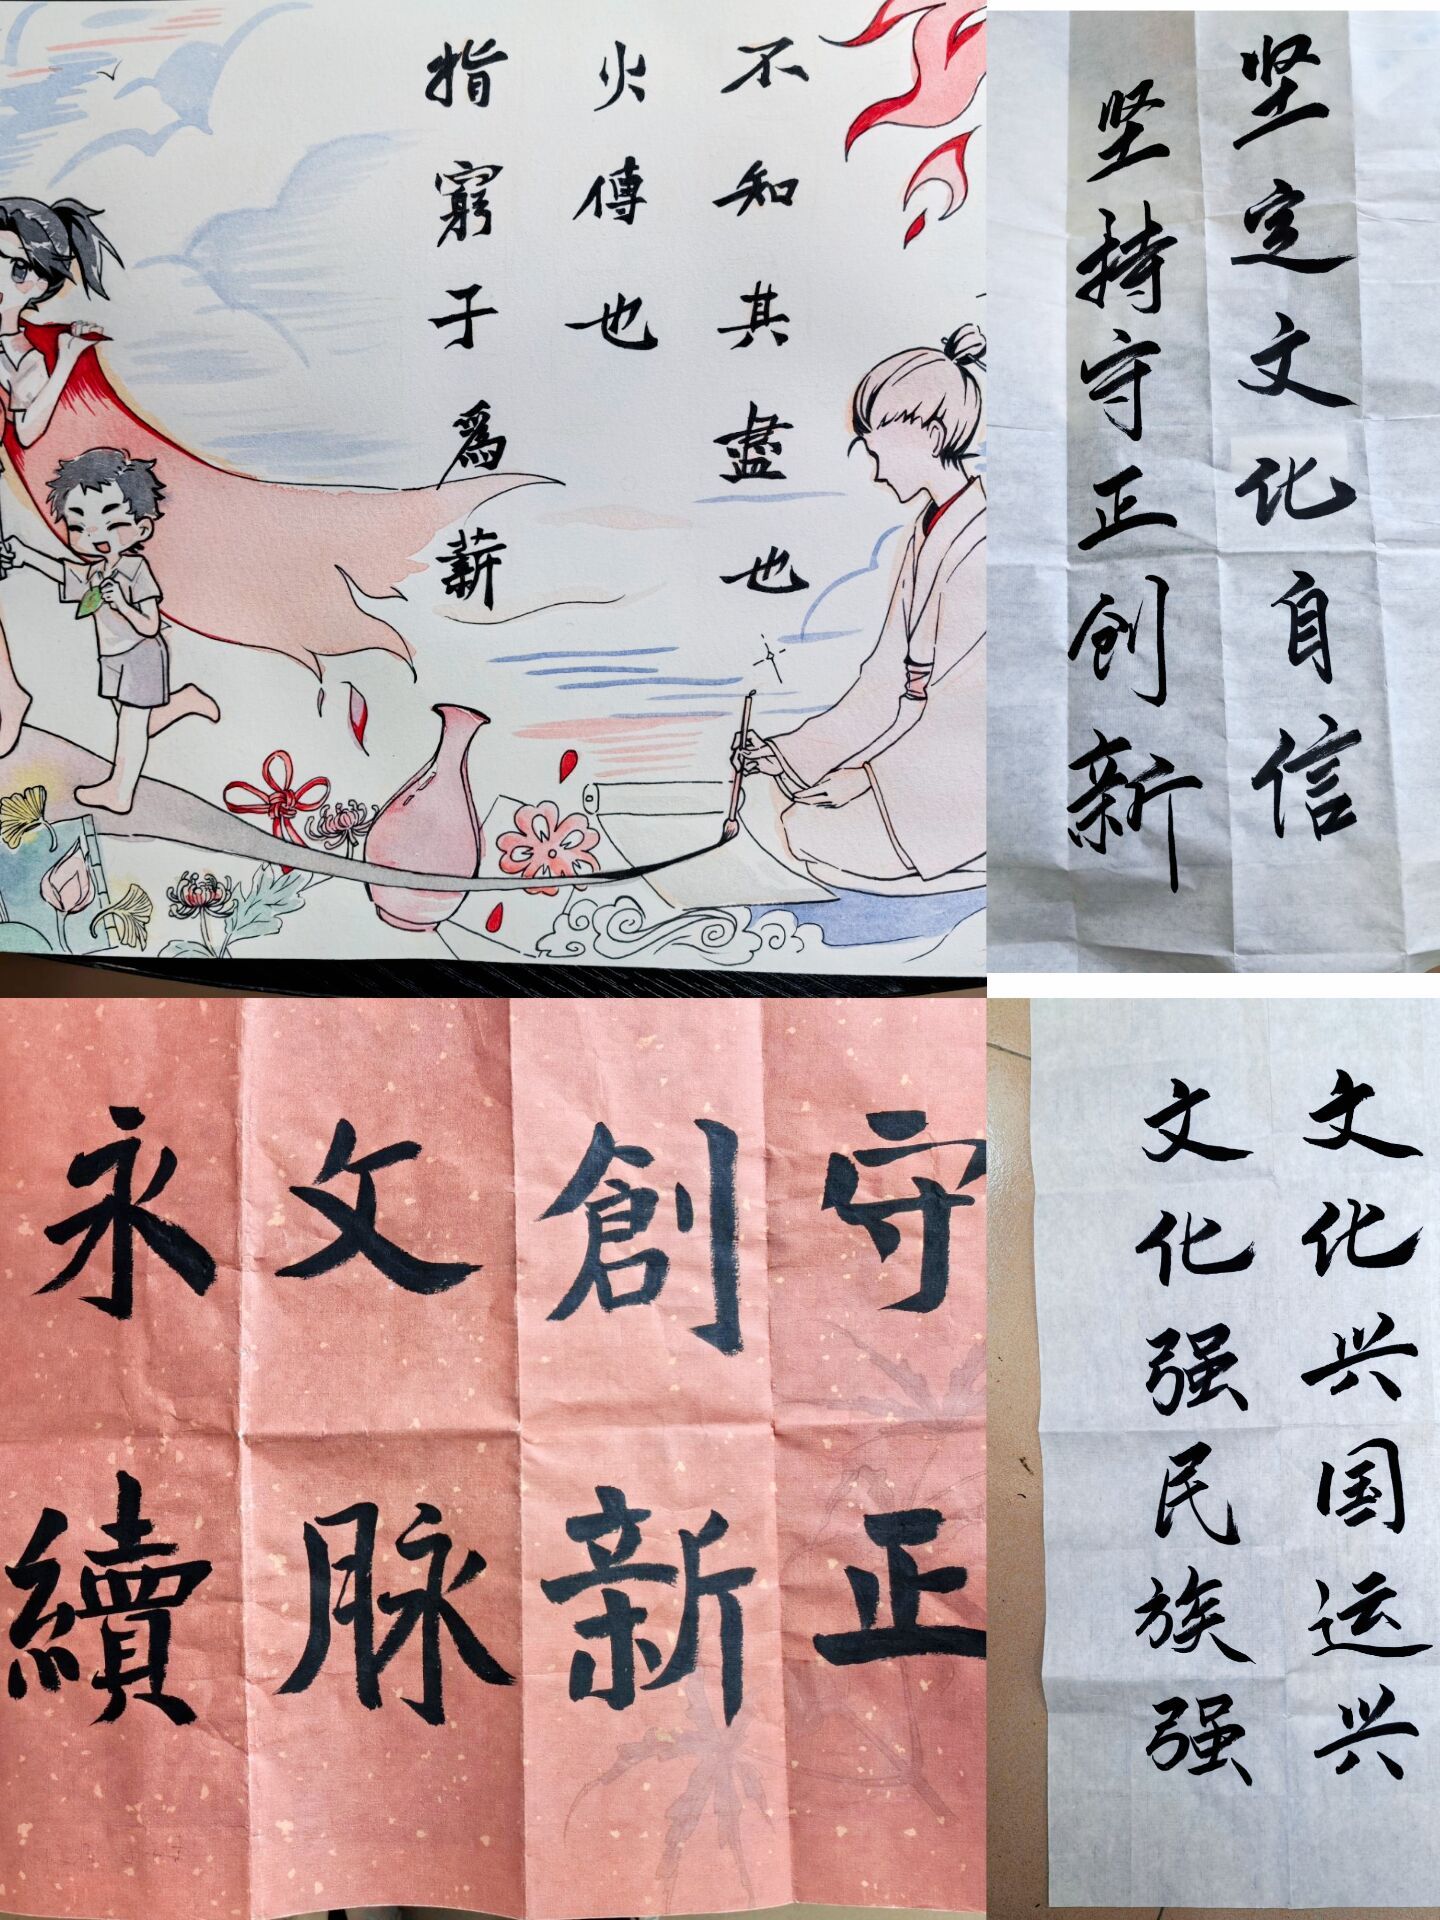 指窮于爲薪
火傳也
不知其盡也
坚定文化自信
坚持守正创新
守正
創新
文脉
永續
文化兴国运兴
文化强民族强